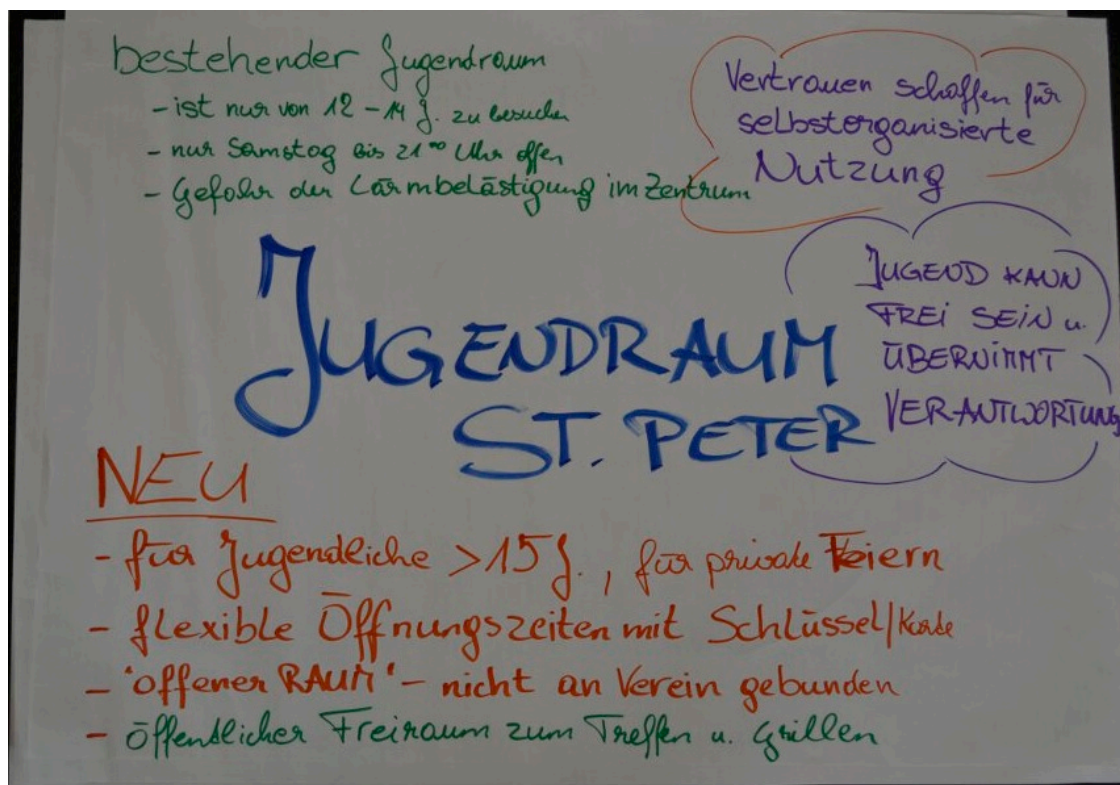 bestehender Jugendraum
- ist nur von 12 - 14 J. zu besuchen
- nur Samstag bis 21⁰⁰ Uhr offen
- Gefahr der Lärmbelästigung im Zentrum
Vertrauen schaffen für
selbstorganisierte
Nutzung
JUGEND KANN
FREI SEIN u.
ÜBERNIMMT
VERANTWORTUNG
JUGENDRAUM
ST. PETER
NEU
- für Jugendliche >15 J., für private Feiern
- flexible Öffnungszeiten mit Schlüssel/Karte
- "offener RAUM" - nicht an Verein gebunden
- öffentlicher Freiraum zum Treffen u. Grillen